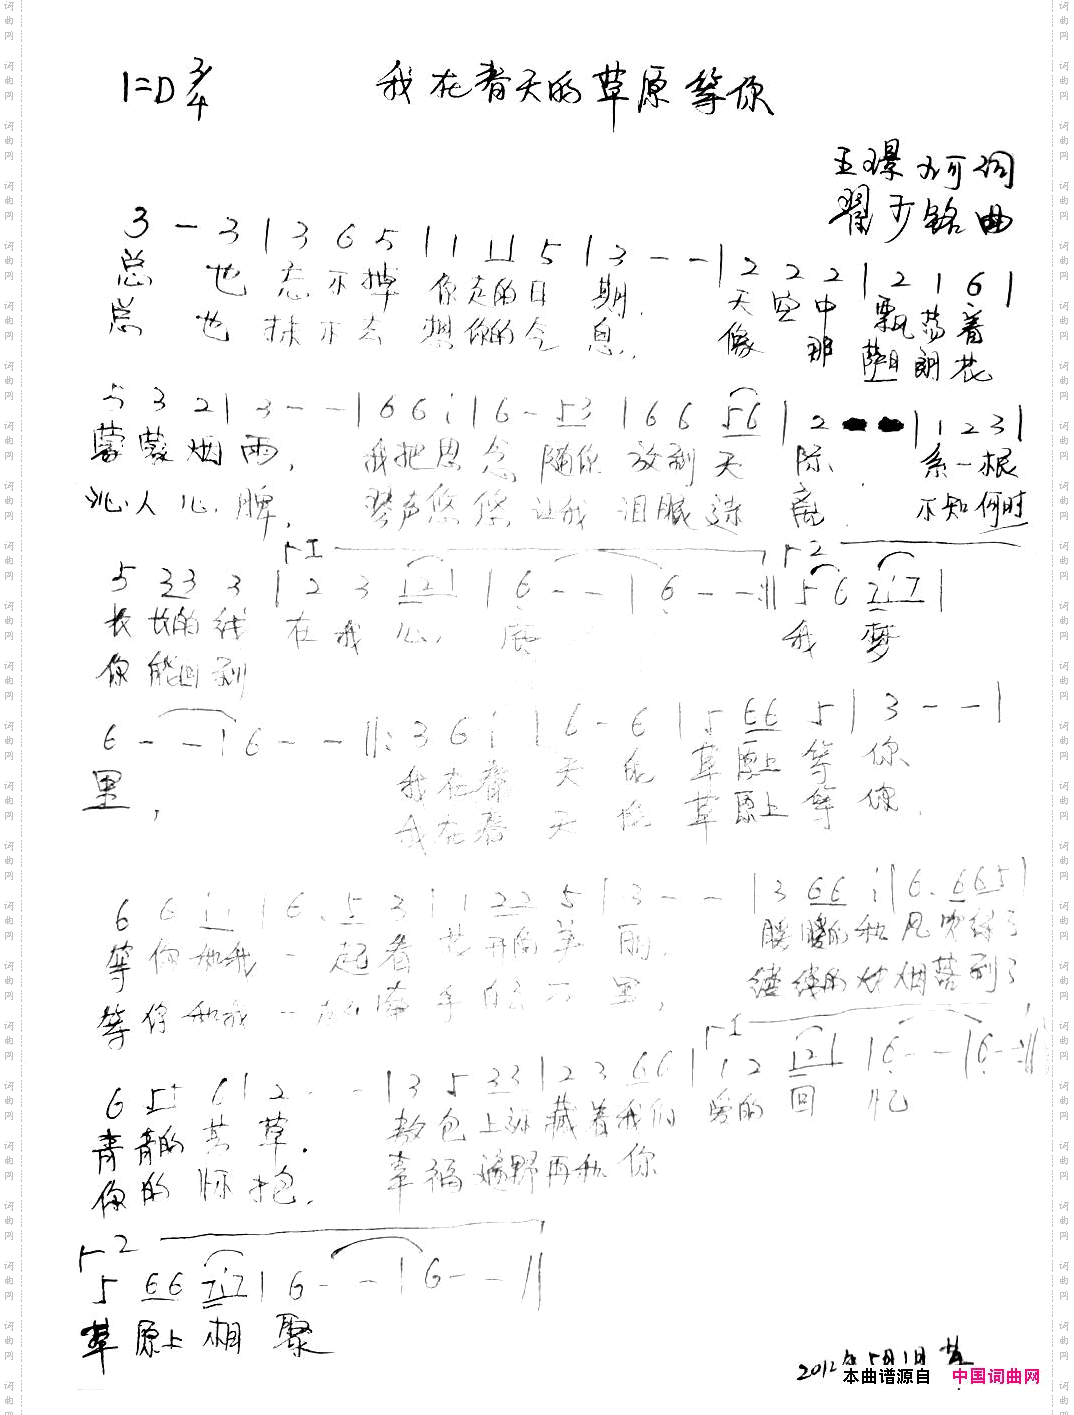 1=D 3/4 我在春天的草原等你
王璟 词
翟 铭 曲
3 - 3 | 3 6 5 | 1 11 5 | 3 - - | 2 2 2 | 2 1 6 |
总 也 忘不掉 你走的日 期. 天空中 飘荡着
总 也 抹不去 想你的 息. 像 那 萨日朗花
5 3 2 | 3 - - | 6 6 i | 6 - 53 | 6 6 56 | 2 | 1 2 3 |
蒙蒙烟雨, 我把思念 随你 放到天 际. 系一根
沁人心脾, 琴声悠悠 让我 泪眼迷 离. 不知何时
I 2
5 33 3 | 2 3 121 | 6 - - | 6 - - :|| 5 6 7i7 |
长长的线 在我心 底 我 梦
你能回到
6 - - | 6 - - ||: 3 6 i | 6 - 6 | 5 66 5 | 3 - - |
里, 我在春 天 的 草原上等 你
我在春 天 的 草原上等 你.
6 6 ii | 6. 5 3 | 1 22 5 | 3 - - | 3 66 i | 6. 665 |
等你和我 一起看 花开的美 丽. 暖暖的和风吹绿了
等你和我 一 牵手 里, 缕缕的炊烟落到了
I
6 55 6 | 2 - - | 3 5 33 | 2 3 66 | 1 2 121 | 6 - - | 6 - - :||
青青的芳草. 敖包上 藏着我们 爱的 回 忆
你的怀抱. 幸福 再和你
2
5 66 7i7 | 6 - - | 6 - - ||
草原上相 聚
2012年5月1日
本曲谱源自 中国词曲网
词曲网